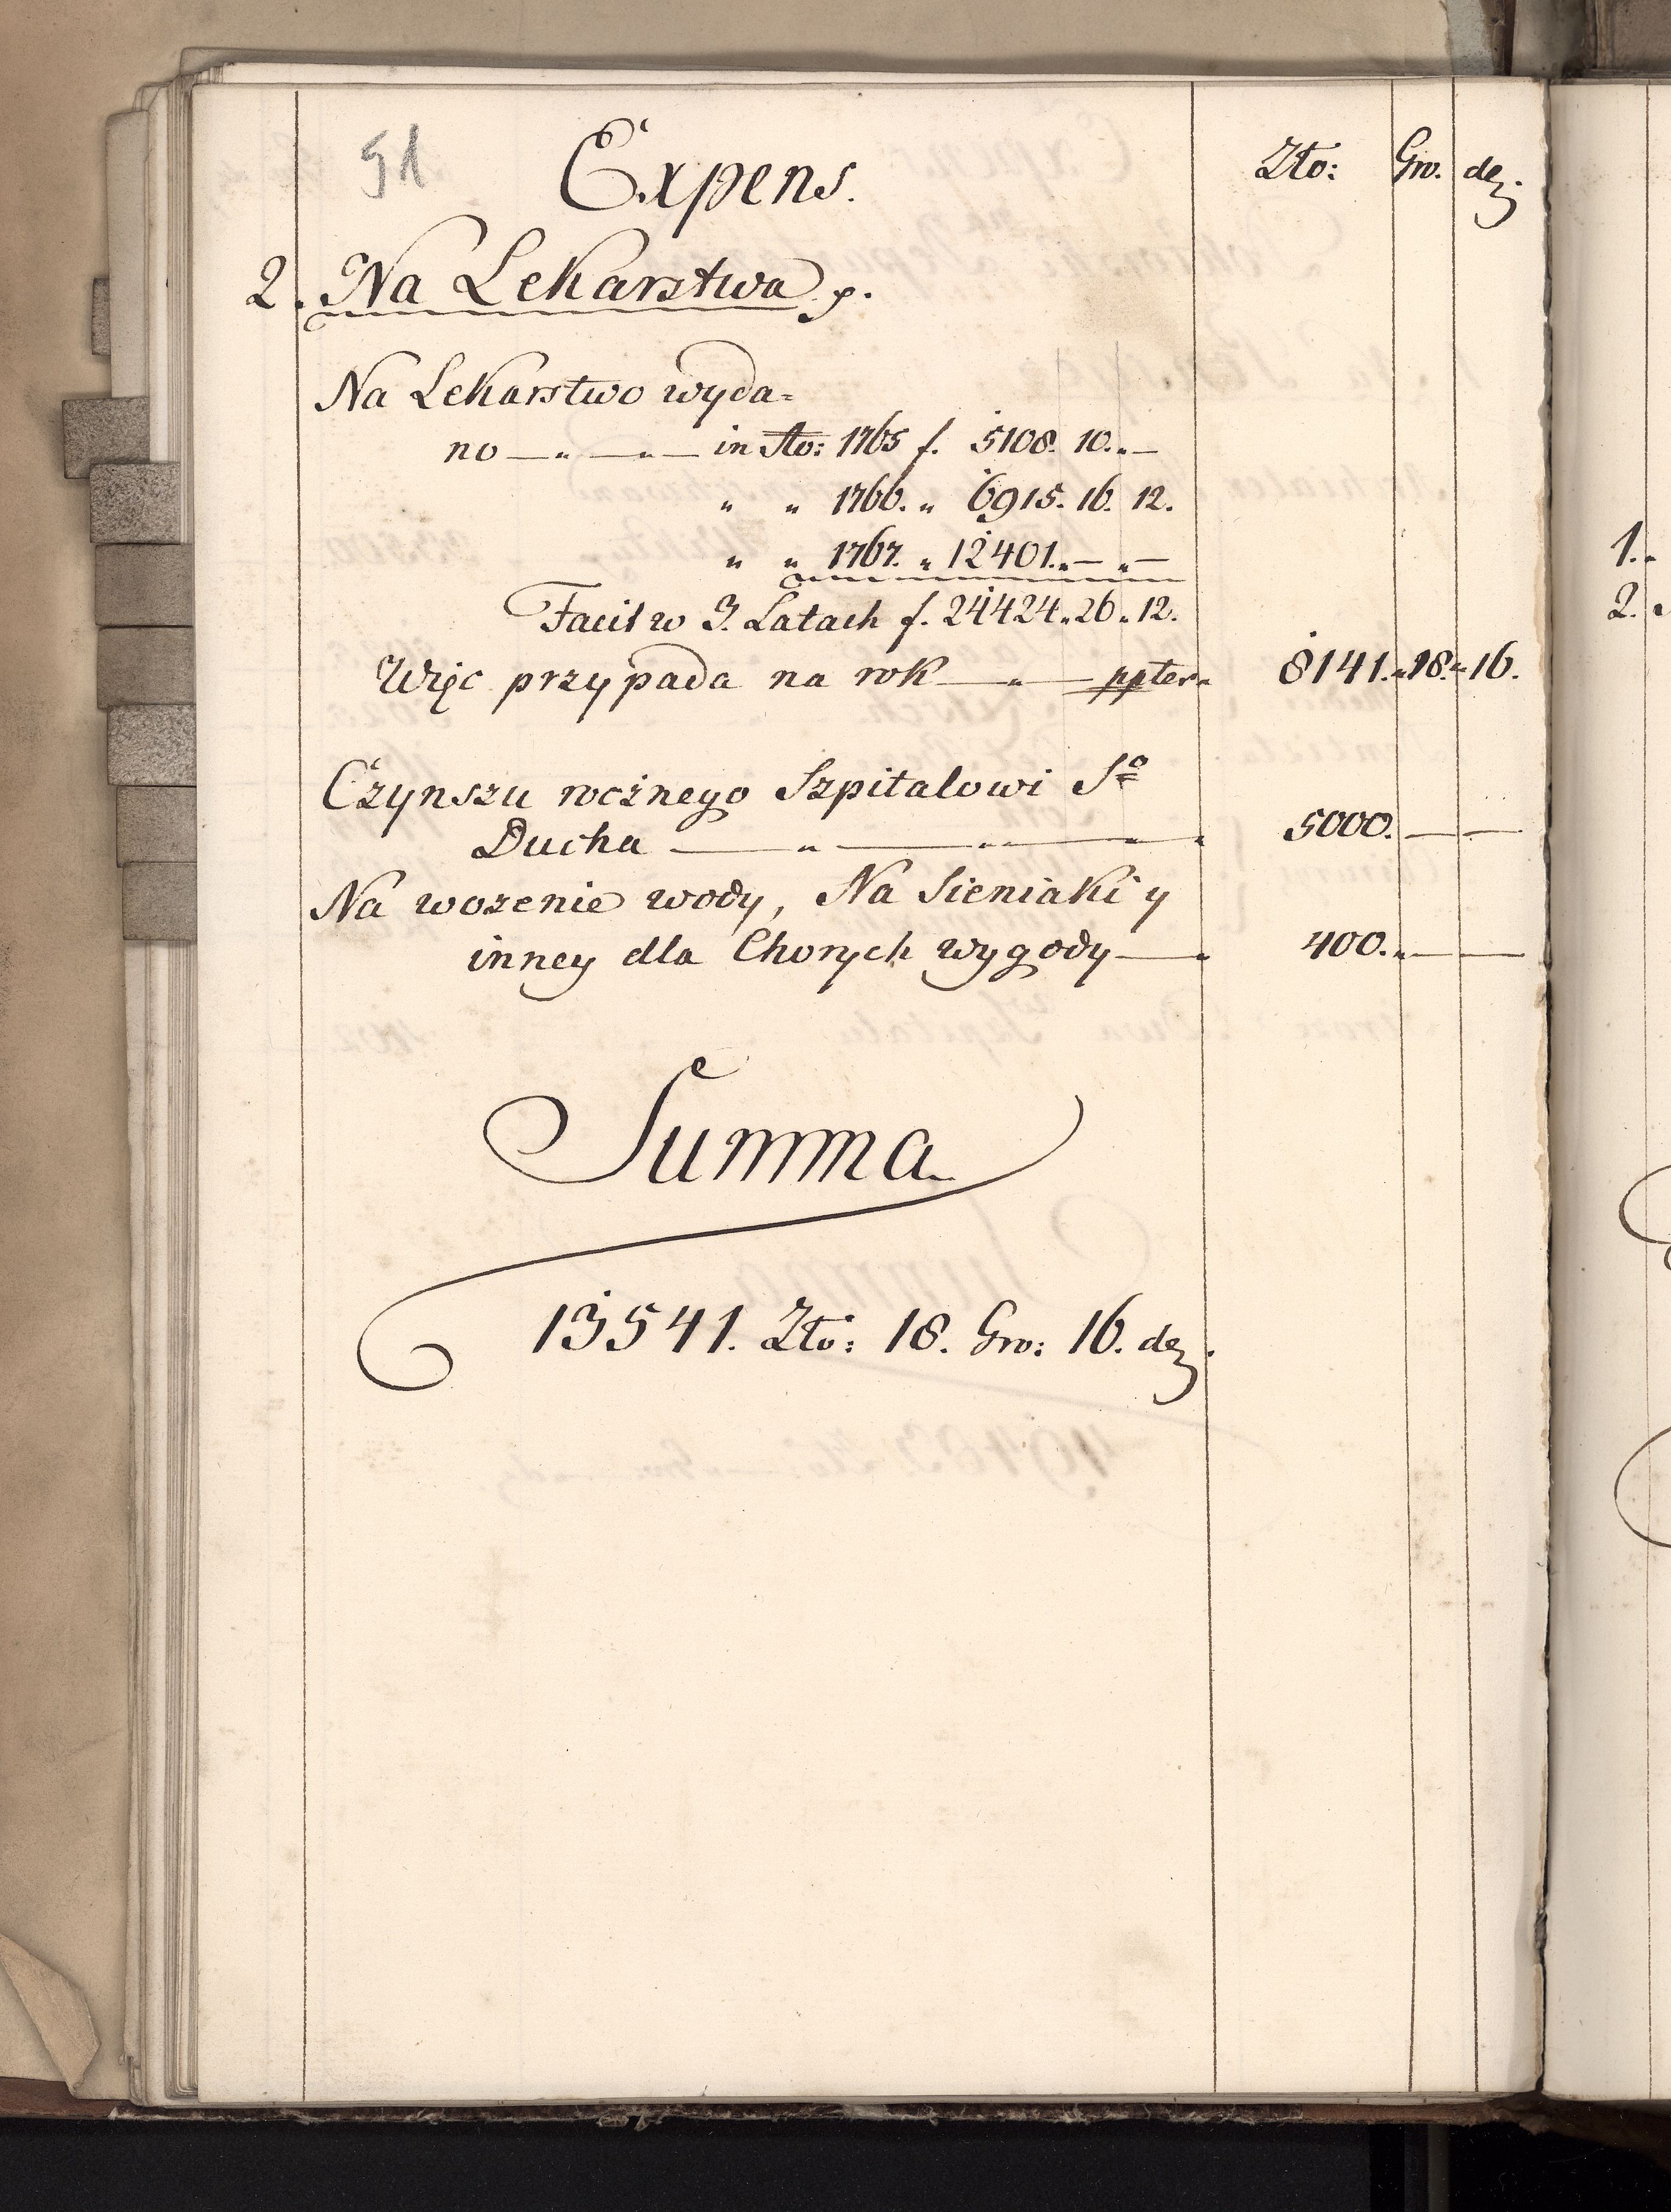 51
Expens. Zło: Gro. de.
2. Na Lekarstwa
Na Lekarstwo wyda=
no — „ — „ — in Ao: 1765 f. 5108. 10. „ —
„ „ 1766. „ 6915. 16. 12.
„ „ 1767. „ 12401. „ — „ —
Facit w 3. Latach f. 24424. „ 26 „ 12.
Więc przypada na rok — „ — ppter „ 8141. „ 18. „ 16.
Czynszu rocznego Szpitalowi Sº
Ducha — „ — „ — „ — „ 5000. — —
Na wozenie wody, Na Sieniaki y
inney dla Chorych wygody — „ 400. „ — —
Summa
13541. Zło: 18. Gro: 16. de.
1. „
2.